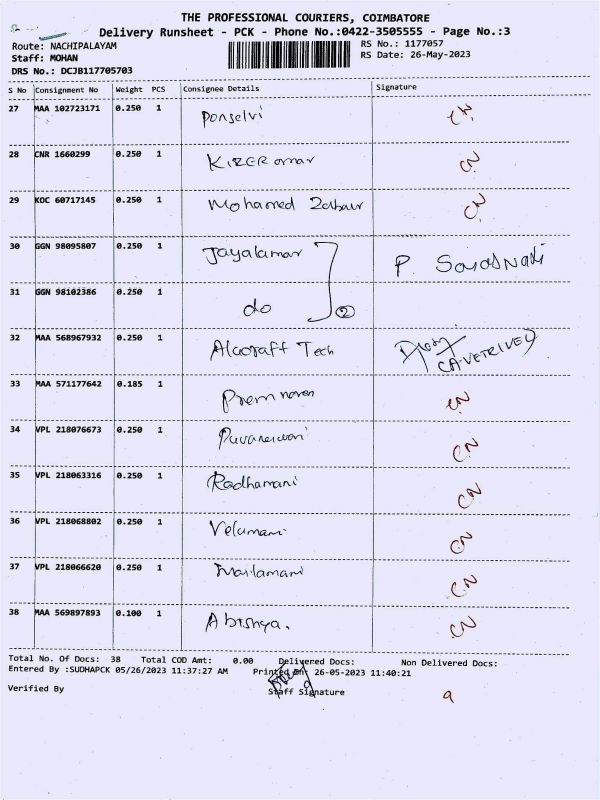 THE PROFESSIONAL COURIERS, COIMBATORE
Delivery Runsheet - PCK - Phone No.:0422-3505555 - Page No.:3
Route: NACHIPALAYAM
RS No.: 1177057
Staff: MOHAN
RS Date: 26-May-2023
DRS No.: DCJB117705703
S No Consignment No Weight PCS Consignee Details Signature
27 MAA 102723171 0.250 1 Ponselvi CN
28 CNR 1660299 0.250 1 CN
29 KOC 60717145 0.250 1 Mohamed CN
30 GGN 98095807 0.250 1 Jayalamar P.
31 GGN 98102386 0.250 1 do 2
32 MAA 568967932 0.250 1 Tech CA.VETRIVEL
33 MAA 571177642 0.185 1 Prem naven CN
34 VPL 218076673 0.250 1 CN
35 VPL 218063316 0.250 1 Radhamani CN
36 VPL 218068802 0.250 1 Velumani CN
37 VPL 218066620 0.250 1 Mailamani CN
38 MAA 569897893 0.100 1 Abishya. CN
Total No. Of Docs: 38 Total COD Amt: 0.00 Delivered Docs: Non Delivered Docs:
Entered By :SUDHAPCK 05/26/2023 11:37:27 AM Printed On: 26-05-2023 11:40:21
Verified By Staff Signature 9